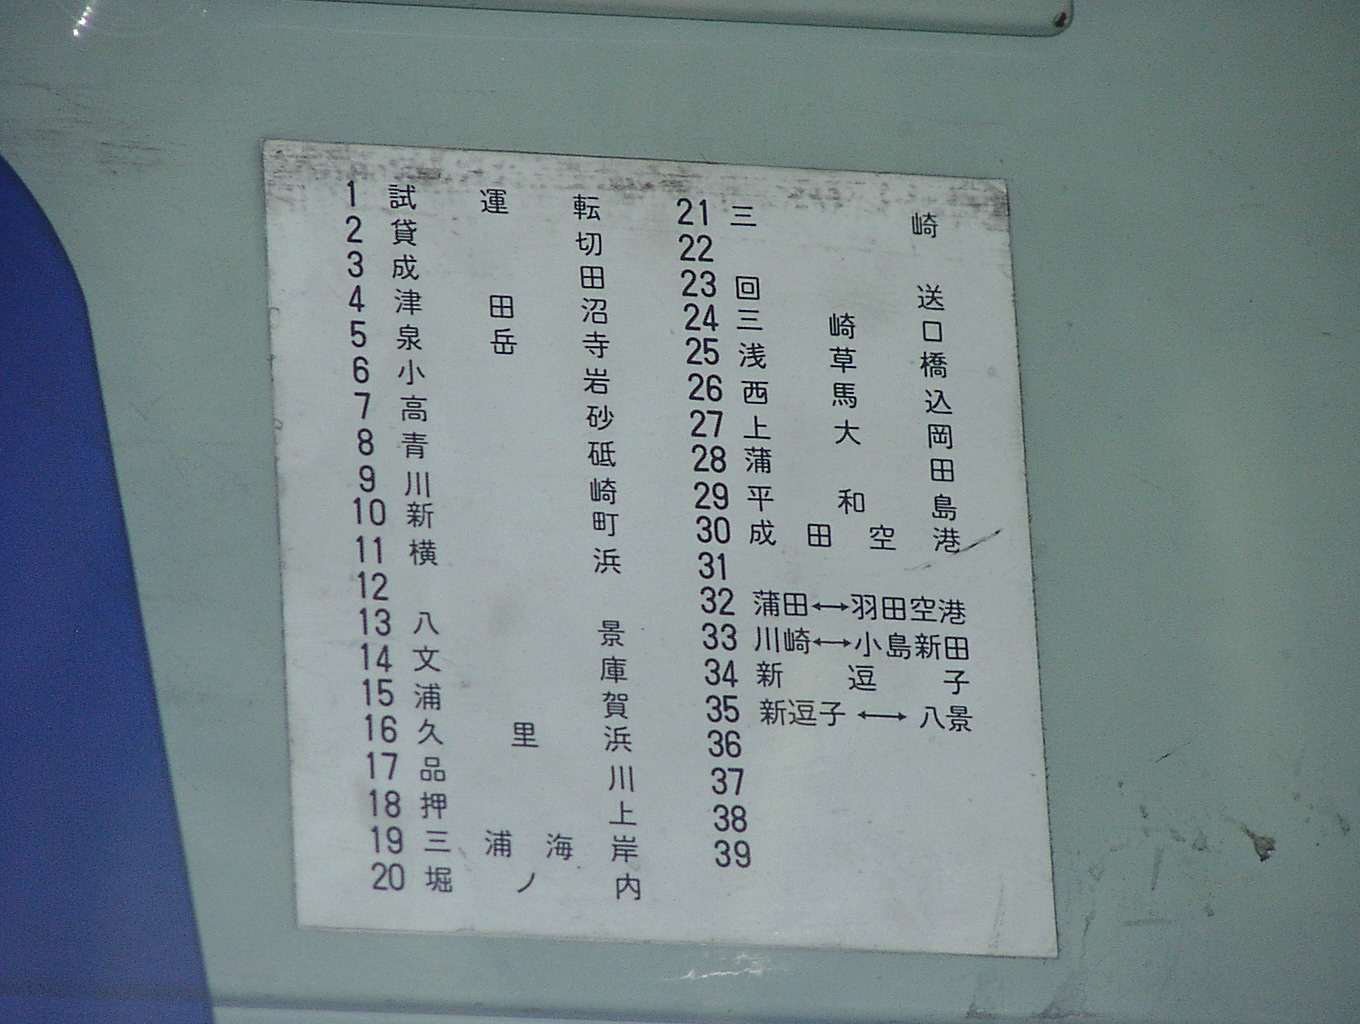 1 試運転
2 貸切
3 成田
4 津田沼
5 泉岳寺
6 小岩
7 高砂
8 青砥
9 川崎
10 新町
11 横浜
12
13 八景
14 文庫
15 浦賀
16 久里浜
17 品川
18 押上
19 三浦海岸
20 堀ノ内
21 三崎
22
23 回送
24 三崎口
25 浅草橋
26 西馬込
27 上大岡
28 蒲田
29 平和島
30 成田空港
31
32 蒲田↔羽田空港
33 川崎↔小島新田
34 新逗子
35 新逗子↔八景
36
37
38
39